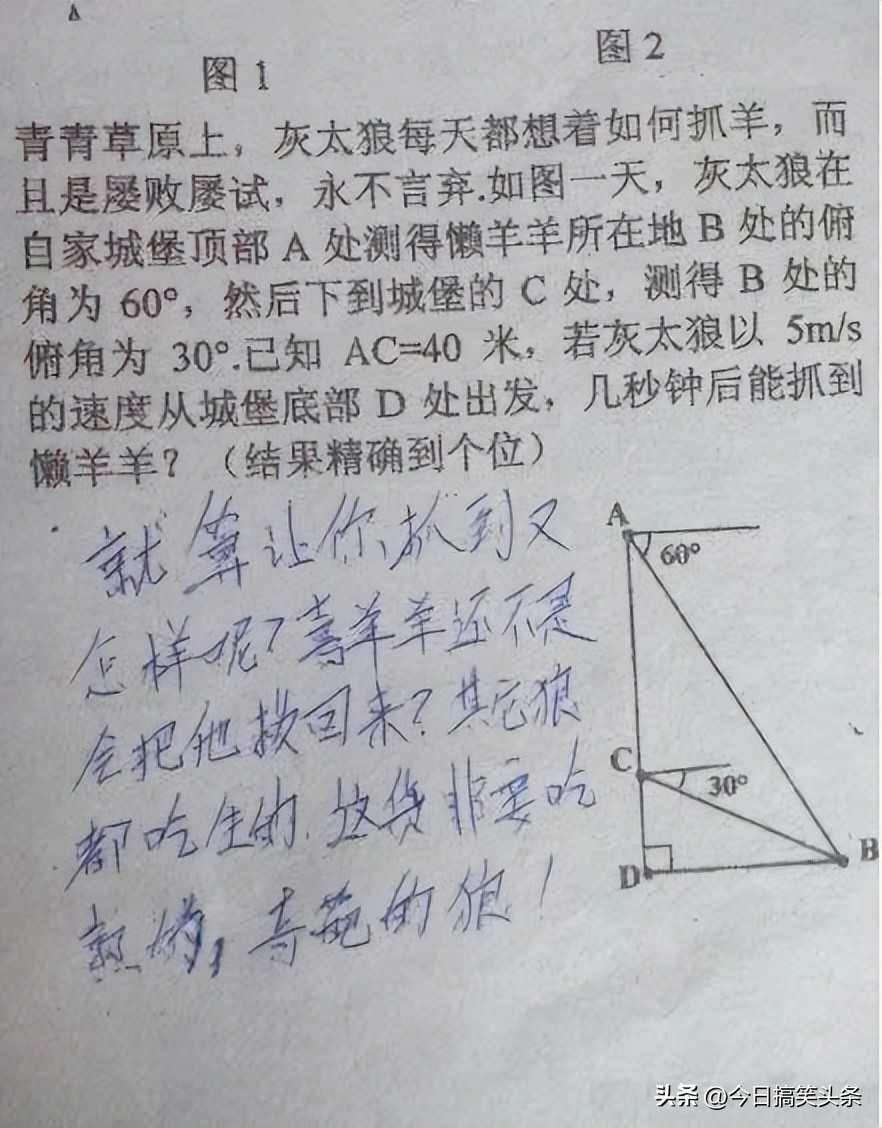 图1
图2
青青草原上，灰太狼每天都想着如何抓羊，而
且是屡败屡试，永不言弃.如图一天，灰太狼在
自家城堡顶部 A 处测得懒羊羊所在地 B 处的俯
角为 60°，然后下到城堡的 C 处，测得 B 处的
俯角为 30°.已知 AC=40 米，若灰太狼以 5m/s
的速度从城堡底部 D 处出发，几秒钟后能抓到
懒羊羊？（结果精确到个位）
就算让你抓到又
怎样呢？喜羊羊还不是
会把他救回来？其它狼
都吃生的，这货非要吃
熟的，奇葩的狼！
A
60°
C
30°
D
B
头条 @今日搞笑头条